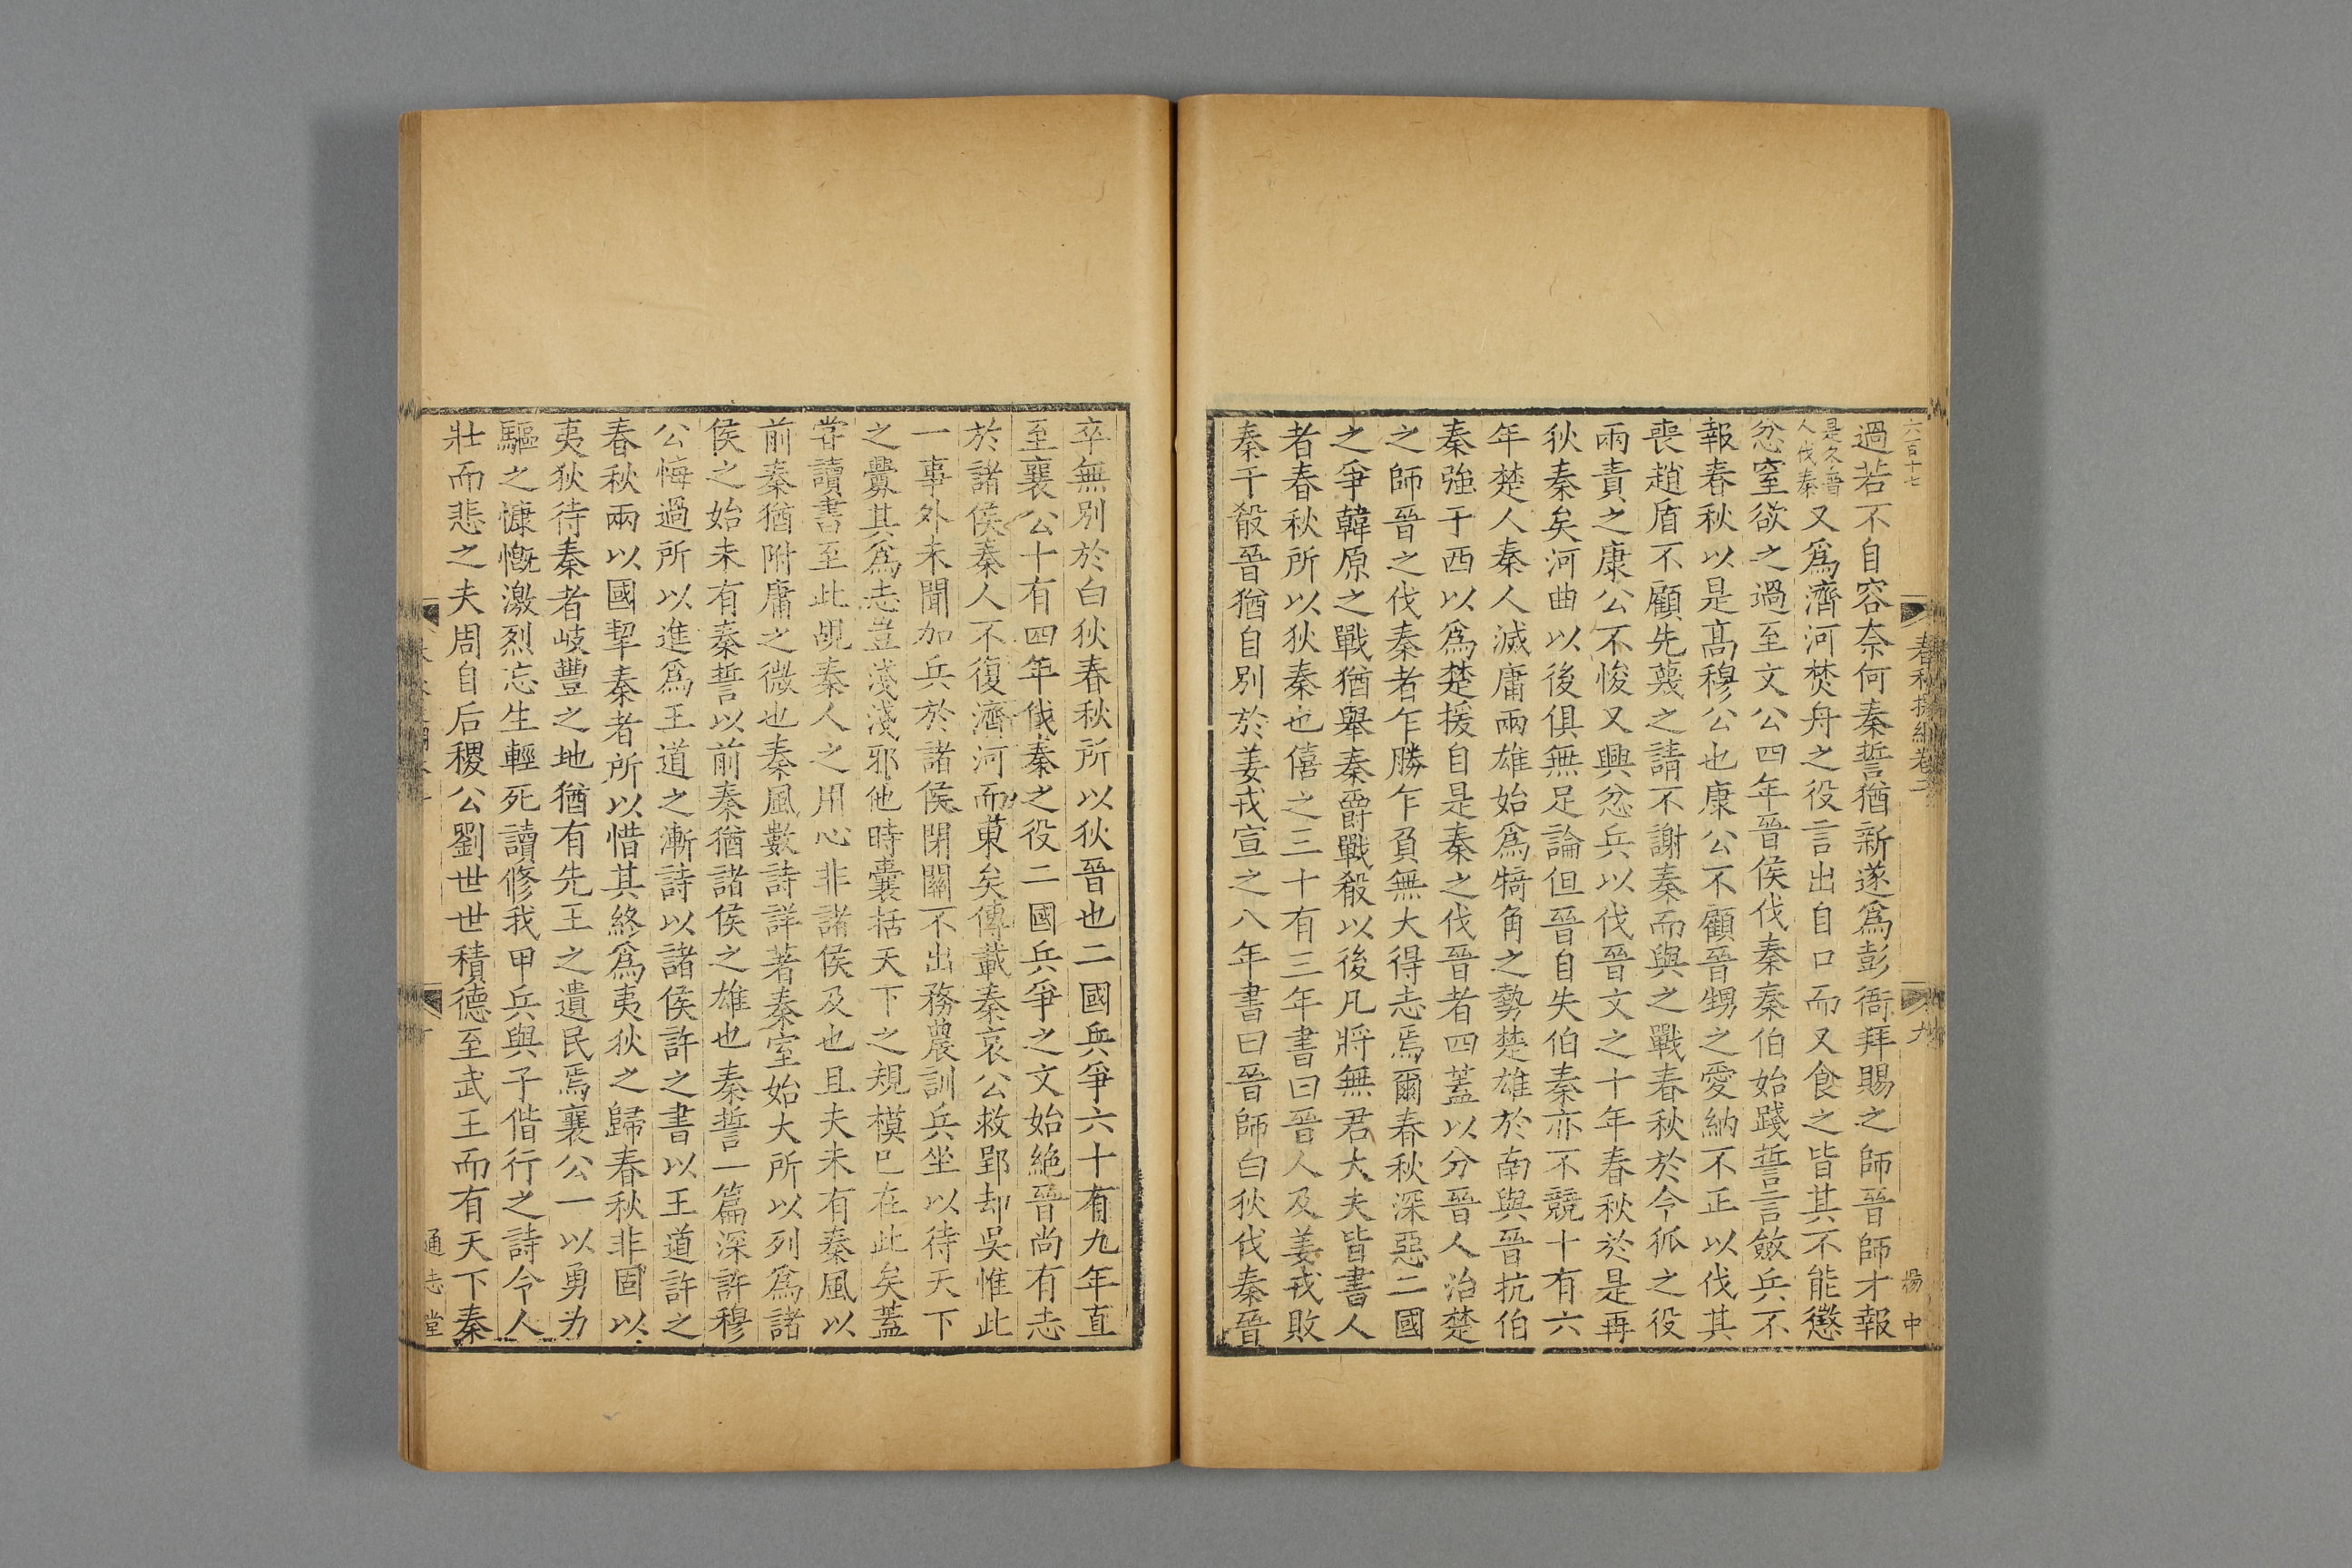 六百十七
過若不自容奈何秦誓猶新遂爲彭衙拜賜之師晉師才報
是久晉人伐秦又爲濟河焚舟之役言出自口而又食之皆其不能懲
忿窒欲之過至文公四年晉侯伐秦秦伯始踐誓言斂兵不
報春秋以是髙穆公也康公不顧晉甥之愛納不正以伐其
喪趙盾不顧先蔑之請不謝秦而與之戰春秋於令狐之役
兩責之康公不悛又興忿兵以伐晉文之十年春秋於是再
狄秦矣河曲以後俱無足論但晉自失伯秦亦不競十有六
年楚人秦人滅庸兩雄始爲犄角之勢楚雄於南與晉抗伯
秦強于西以爲楚援自是秦之伐晉者四蓋以分晉人治楚
之師晉之伐秦者乍勝乍負無大得志焉爾春秋深惡二國
之爭韓原之戰猶舉秦爵戰殽以後凡將無君大夫皆書人
者春秋所以狄秦也僖之三十有三年書曰晉人及姜戎敗
秦于殽晉猶自別於姜戎宣之八年書曰晉師白狄伐秦晉
楊中
卒無別於白狄春秋所以狄晉也二國兵爭六十有九年直
至襄公十有四年伐秦之役二國兵爭之文始絶晉尚有志
於諸侯秦人不復濟河而東矣傳載秦哀公救郢却吳惟此
一事外未聞加兵於諸侯閉關不出務農訓兵坐以待天下
之釁其爲志豈淺淺邪他時囊括天下之規模已在此矣蓋
甞讀書至此覘秦人之用心非諸侯及也且夫未有秦風以
前秦猶附庸之微也秦風數詩詳著秦室始大所以列爲諸
侯之始未有秦誓以前秦猶諸侯之雄也秦誓一篇深許穆
公悔過所以進爲王道之漸詩以諸侯許之書以王道許之
春秋兩以國挈秦者所以惜其終爲夷狄之歸春秋非固以
夷狄待秦者岐豐之地猶有先王之遺民焉襄公一以勇力
驅之慷慨激烈忘生輕死讀修我甲兵與子偕行之詩令人
壯而悲之夫周自后稷公劉世世積德至武王而有天下秦
通志堂